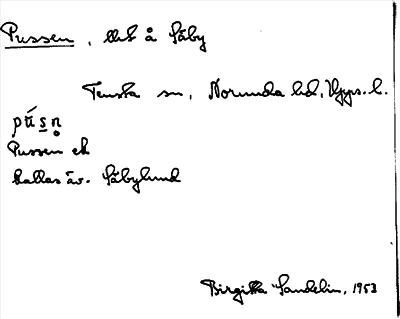 Pussen, llt å Säby
Tensta sn, Norunda hd, Upps. l.
pú̄s̠n̥
Pussen el
kallas äv. Säbylund
Birgitta Sandelin, 1953